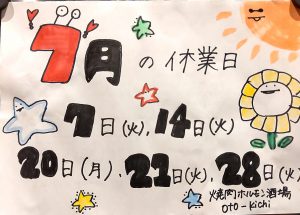 7月の休業日
7日(火),14日(火)
20日(月),21日(火),28日(火)
焼肉ホルモン酒場
oto-kichi